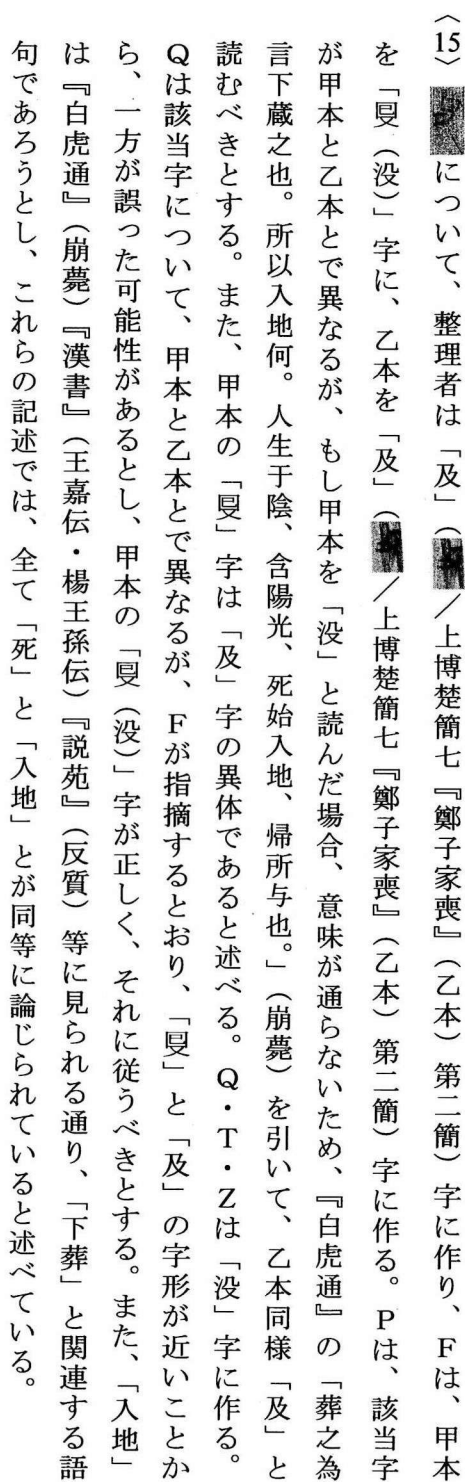 〈15〉 について、整理者は「及」（／上博楚簡七『鄭子家喪』（乙本）第二簡）字に作り、Fは、甲本
を「𠬛（没）」字に、乙本を「及」（／上博楚簡七『鄭子家喪』（乙本）第二簡）字に作る。Pは、該当字
が甲本と乙本とで異なるが、もし甲本を「没」と読んだ場合、意味が通らないため、『白虎通』の「葬之為
言下蔵之也。所以入地何。人生于陰、含陽光、死始入地、帰所与也。」（崩薨）を引いて、乙本同様「及」と
読むべきとする。また、甲本の「𠬛」字は「及」字の異体であると述べる。Q・T・Zは「没」字に作る。
Qは該当字について、甲本と乙本とで異なるが、Fが指摘するとおり、「𠬛」と「及」の字形が近いことか
ら、一方が誤った可能性があるとし、甲本の「𠬛（没）」字が正しく、それに従うべきとする。また、「入地」
は『白虎通』（崩薨）『漢書』（王嘉伝・楊王孫伝）『説苑』（反質）等に見られる通り、「下葬」と関連する語
句であろうとし、これらの記述では、全て「死」と「入地」とが同等に論じられていると述べている。